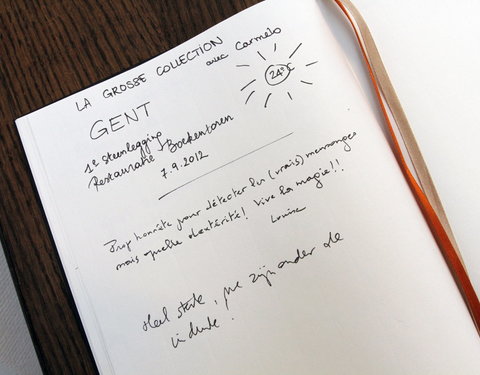 LA GROSSE COLLECTION
avec Carmelo
24°C
GENT
1e Steenlegging
Restauratie Boekentoren
7.9.2012
Trop honnête pour détecter les (vrais) mensonges
mais quelle dextérité! Vive la magie!!
Louise
Heel sterk, we zijn onder de
indruk!